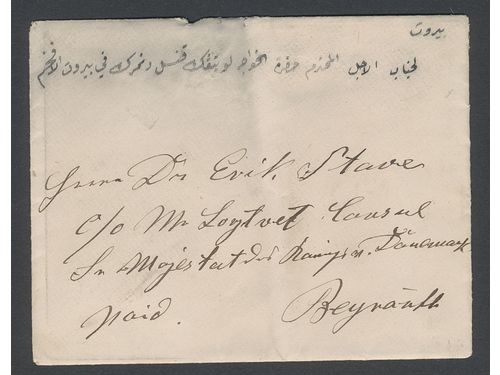 بيروت
لجناب الاجل المحترم حضرة الخواجه لويتفك قنسل دنمرك في بيروت الافخم
Herrn Dr Erik Stave
c/o Mr Loytvet Consul
Sr Majestät des Königs v. Dänemark
paid. Beyrouth